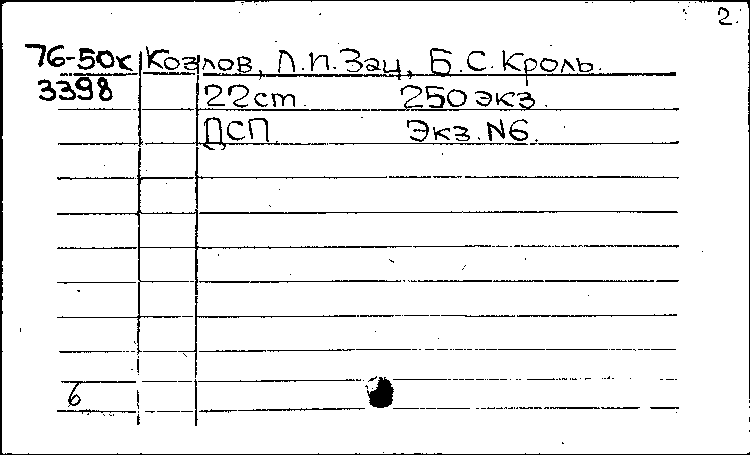 2.
76-50к Козлов, Л.П. Зац, Б.С. Кроль.
3398 22 ст 250 экз.
ДСП Экз. N6.
6